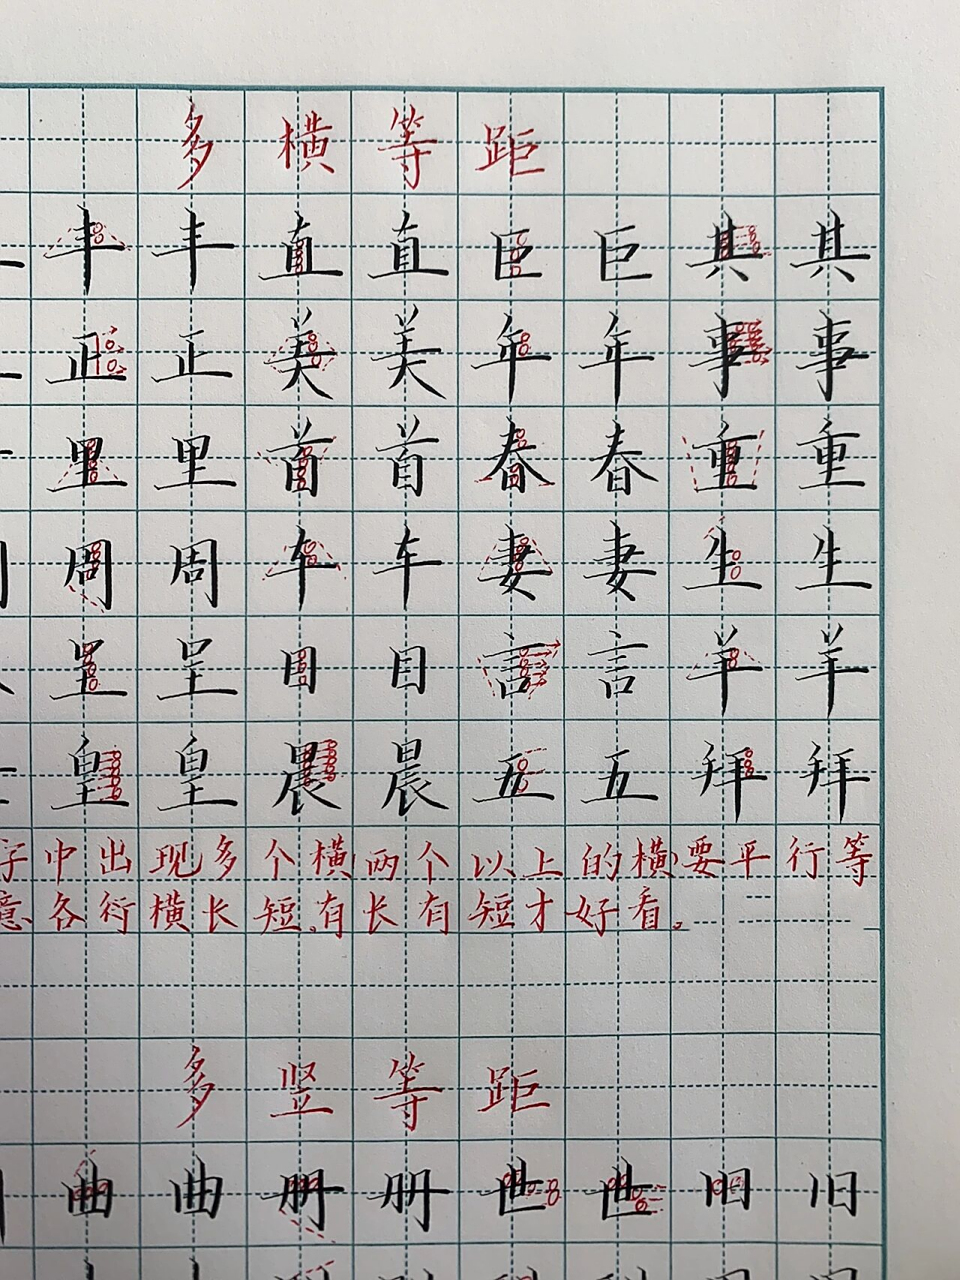 多横等距
丰丰直直巨巨其其
正正美美年年事事
里里首首春春重重
周周车车妻妻生生
呈呈目目言言羊羊
皇皇晨晨五五拜拜
字中出现多个横,两个以上的横,要平行等
意各衍横长短。有长有短才好看。
多竖等距
曲曲册册世世旧旧